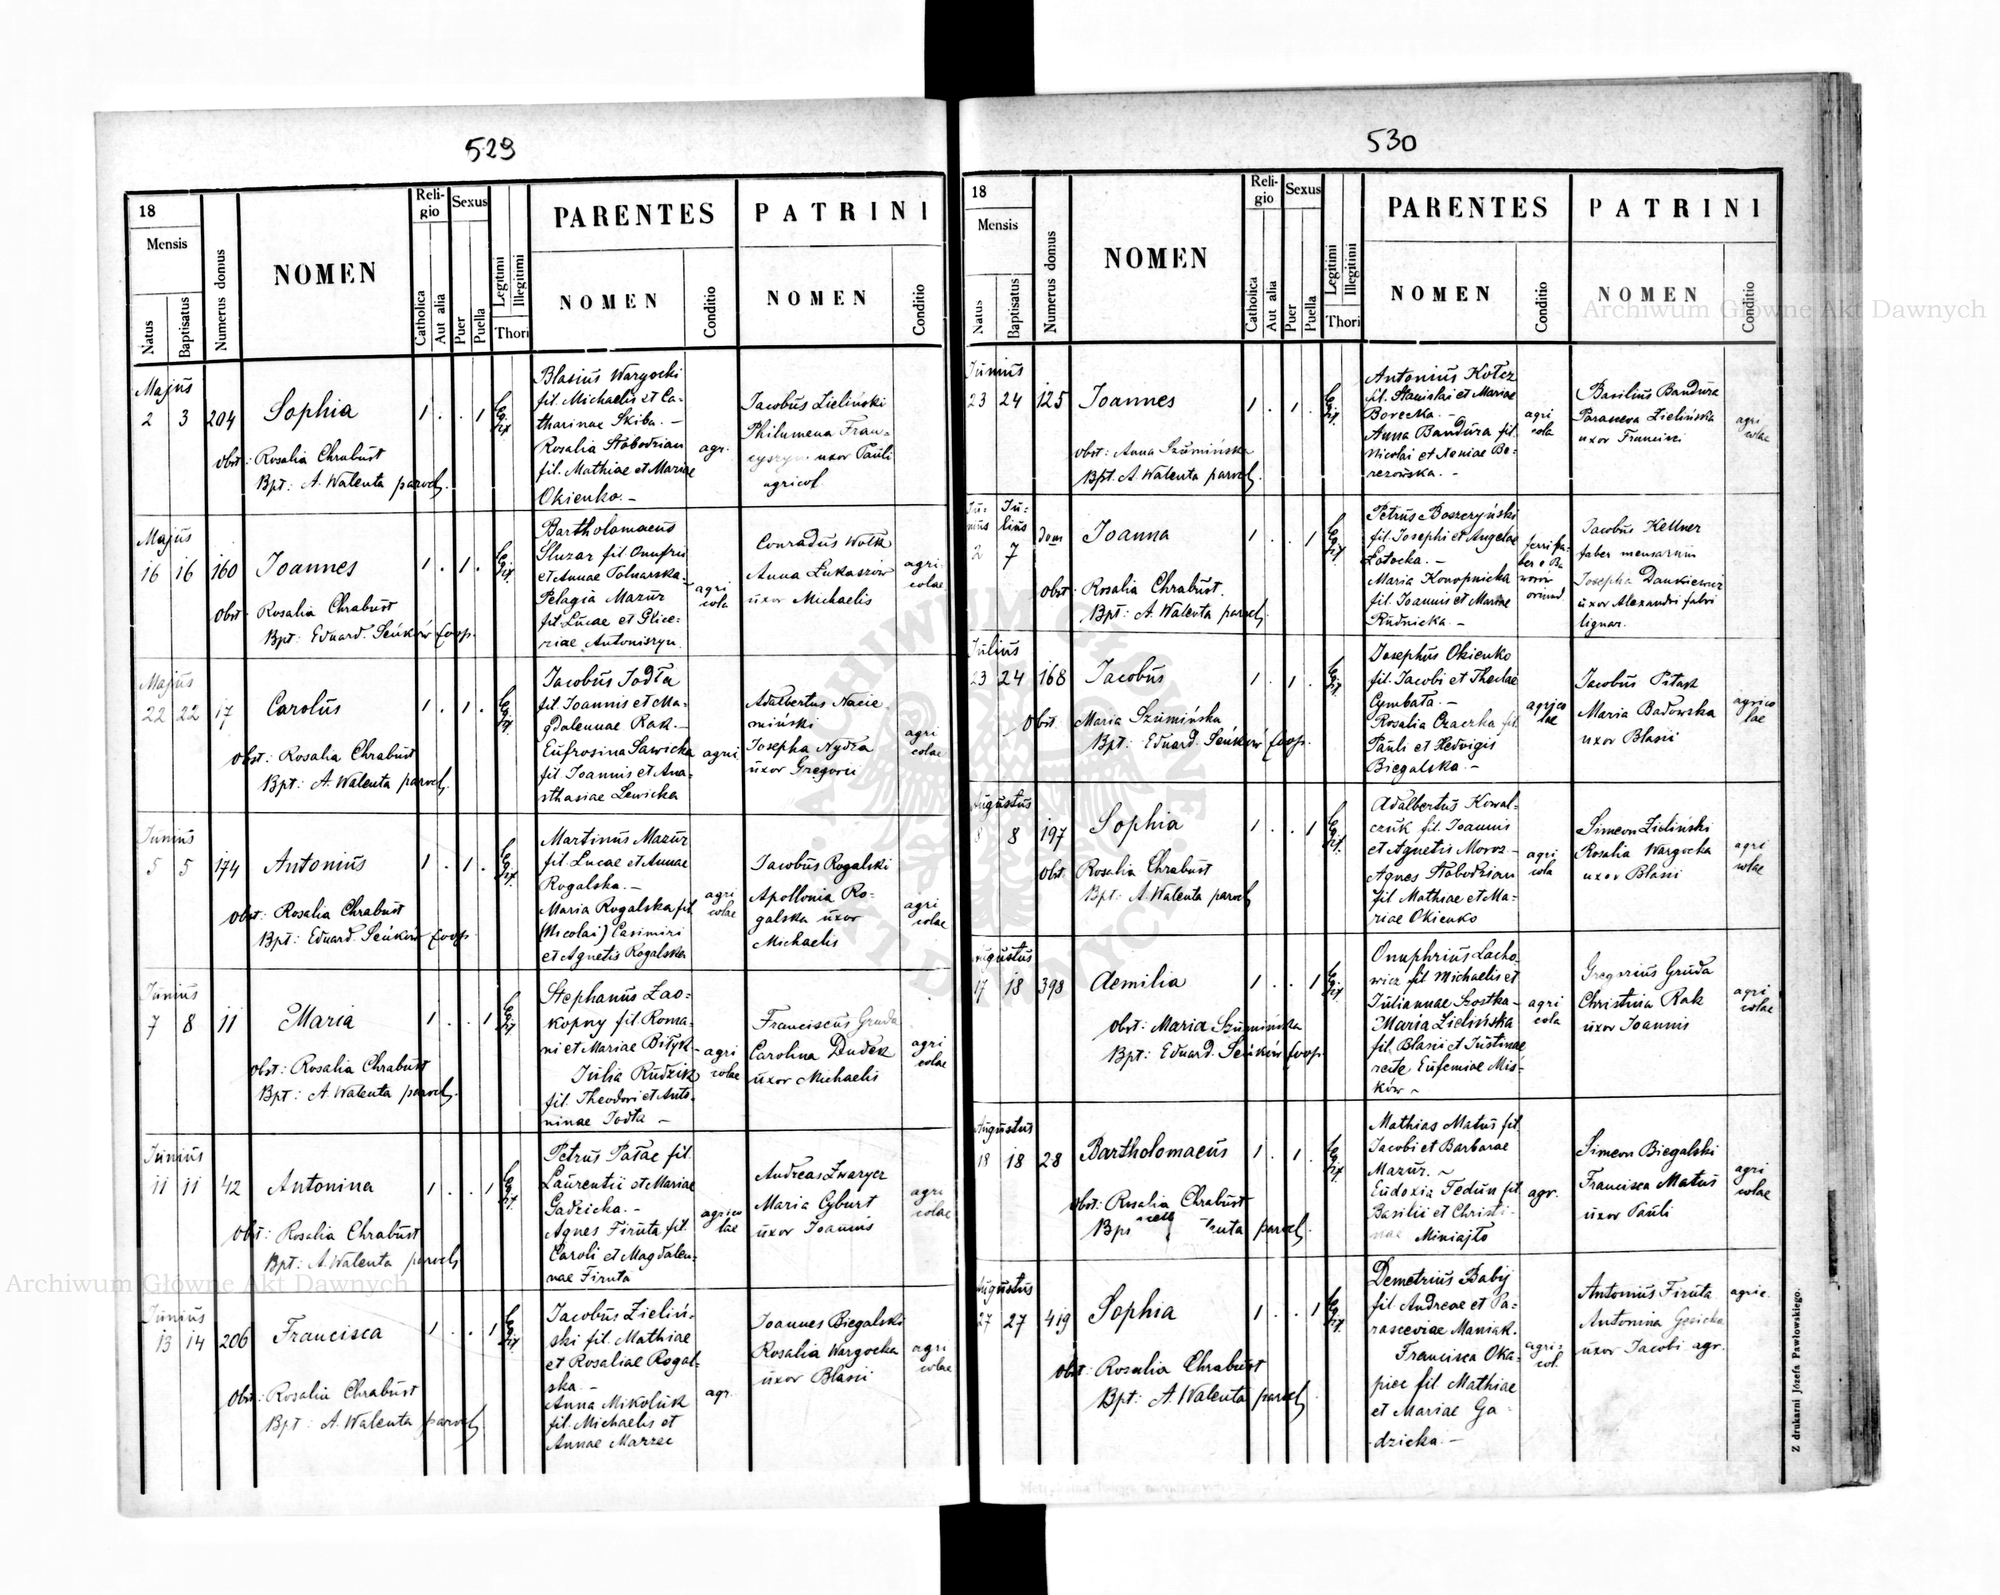 529
18
Mensis
Natus
Baptisatus
Numerus domus
NOMEN
Reli-
gio
Catholica
Aut alia
Sexus
Puer
Puella
Legitimi
Illegitimi
Thori
PARENTES
NOMEN
Conditio
PATRINI
NOMEN
Conditio
Majus
2 3 204 Sophia 1 . . 1
obst: Rosalia Chrabust
Bpt: A. Walenta paroch.
Blasius Wargocki
fil. Michaelis et Ca-
tharinae Skiba. -
Rosalia Słobodzian
fil. Mathiae et Mariae
Okienko. -
agr.
Jacobus Zieliński
Philumena Fran-
uxor Pauli
agricol
Majus
16 16 160 Joannes 1 . 1 .
obst: Rosalia Chrabust
Bpt: Eduard. Seńków Coop.
Bartholomaeus
Sluzar fil. Onufrii
et Annae Tolnarska -
Pelagia Mazur
fil. Lucae et Glice-
riae Antoniszyn.
agri
cola
Conradus Wołk
Anna Łukaszów
uxor Michaelis
agri
colae
Majus
22 22 17 Carolus 1 . 1 .
obst: Rosalia Chrabust
Bpt: A. Walenta paroch.
Jacobus Jodła
fil. Joannis et Ma-
gdalennae Rak. -
Eufrosina Sawicka
fil. Joannis et Ana-
sthasiae Lewicka
agri
Adalbertus Nacie-
miński
Josepha Nydza
uxor Gregorii
agri
colae
Junius
5 5 174 Antonius 1 . 1 .
obst: Rosalia Chrabust
Bpt: Eduard. Seńków Coop.
Martinus Mazur
fil. Lucae et Annae
Rogalska. -
Maria Rogalska fil.
(Nicolai) Casimiri
et Agnetis Rogalska
agri
colae
Jacobus Rogalski
Apollonia Ro-
galska uxor
Michaelis
agri
colae
Junius
7 8 11 Maria 1 . . 1
obst: Rosalia Chrabust
Bpt: A. Walenta paroch.
Stephanus Zao-
kopny fil. Roma-
ni et Mariae Biłyk -
Julia Rudzik
fil. Theodori et Anto-
ninae Jodła -
agri
colae
Franciscus Gruda
Carolina Dudek
uxor Michaelis
agri
colae
Junius
11 11 42 Antonina 1 . . 1
obst: Rosalia Chrabust
Bpt: A. Walenta paroch.
Petrus Pałac fil.
Laurentii et Mariae
Gadzicka. -
Agnes Firuta fil.
Caroli et Magdalen-
nae Firuta
agrico
lae
Andreas Zwarycz
Maria Cyburt
uxor Joannis
agri
colae
Junius
13 14 206 Francisca 1 . . 1
obst: Rosalia Chrabust
Bpt: A. Walenta paroch.
Jacobus Zieliń-
ski fil. Mathiae
et Rosaliae Rogal-
ska -
Anna Mikoluk
fil. Michaelis et
Annae Marzec
agr.
Joannes Biegalski
Rosalia Wargocka
uxor Blasii
agri
colae
530
18
Mensis
Natus
Baptisatus
Numerus domus
NOMEN
Reli-
gio
Catholica
Aut alia
Sexus
Puer
Puella
Legitimi
Illegitimi
Thori
PARENTES
NOMEN
Conditio
PATRINI
NOMEN
Conditio
Junius
23 24 125 Joannes 1 . 1 .
obst: Anna Szumińska
Bpt. A. Walenta paroch.
Antonius Kotcz
fil. Stanislai et Mariae
Borecka. -
Anna Bandura fil.
Nicolai et Xeniae Be-
rezowska. -
agri
cola
Basilius Bandura
Parasceva Zielińska
uxor Francisci
agri
colae
Ju-
nius
Ju-
lius
2 7 dom Joanna 1 . . 1
obst: Rosalia Chrabust.
Bpt: A. Walenta paroch.
Petrus Boszczyński
fil. Josephi et Angelae
Łotocka. -
Maria Konopnicka
fil. Joannis et Mariae
Rudnicka. -
ferri fa-
Jacobus Kellner
faber mensarum
Josepha Dankiewicz
uxor Alexandri fabri
lignar.
Julius
23 24 168 Jacobus 1 . 1 .
Obst: Maria Szumińska
Bpt: Eduard. Seńków Coop.
Josephus Okienko
fil. Jacobi et Theclae
Cymbała. -
Rosalia Czaczka fil.
Pauli et Hedvigis
Biegalska. -
agrico
lae
Jacobus Pitak
Maria Badowska
uxor Blasii
agrico
lae
Augustus
8 8 197 Sophia 1 . . 1
obst: Rosalia Chrabust
Bpt: A. Walenta paroch
Adalbertus Kowal-
czuk fil. Joannis
et Agnetis Moroz -
Agnes Słobodzian
fil Mathiae et Ma-
riae Okienko
agri
cola
Simeon Zieliński
Rosalia Wargocka
uxor Blasii
agri
colae
Augustus
17 18 398 Aemilia 1 . . 1
obst: Maria Szumińska
Bpt: Eduard. Seńków Coop.
Onuphrius Lacho-
wicz fil Michaelis et
Juliannae Szostka -
Maria Zielińska
fil. Blasii et Justinae
recte Eufemiae Mis-
ków -
agri
cola
Gregorius Gruda
Christina Rak
uxor Joannis
agri
colae
Augustus
18 18 28 Bartholomaeus 1 . 1 .
obst: Rosalia Chrabust
paroch.
Mathias Matus fil.
Jacobi et Barbarae
Mazur. -
Eudoxia Fedun fil.
Basilii et Christi-
nae Miniajło
agr.
Simeon Biegalski
Francisca Matus
uxor Pauli
agri
colae
Augustus
27 27 419 Sophia 1 . . 1
obst: Rosalia Chrabust
Bpt: A. Walenta paroch
Demetrius Babij
fil. Andreae et Pa-
rasceviae Maniak.
Francisca Oka-
piec fil. Mathiae
et Mariae Ga-
dzicka. -
agri-
col.
Antonius Firuta
Antonina Gęsicka
uxor Jacobi agr.
agric.
Z drukarni Józefa Pawłowskiego.
Archiwum Główne Akt Dawnych
Archiwum Główne Akt Dawnych
ARCHIWUM GŁÓWNE AKT DAWNYCH